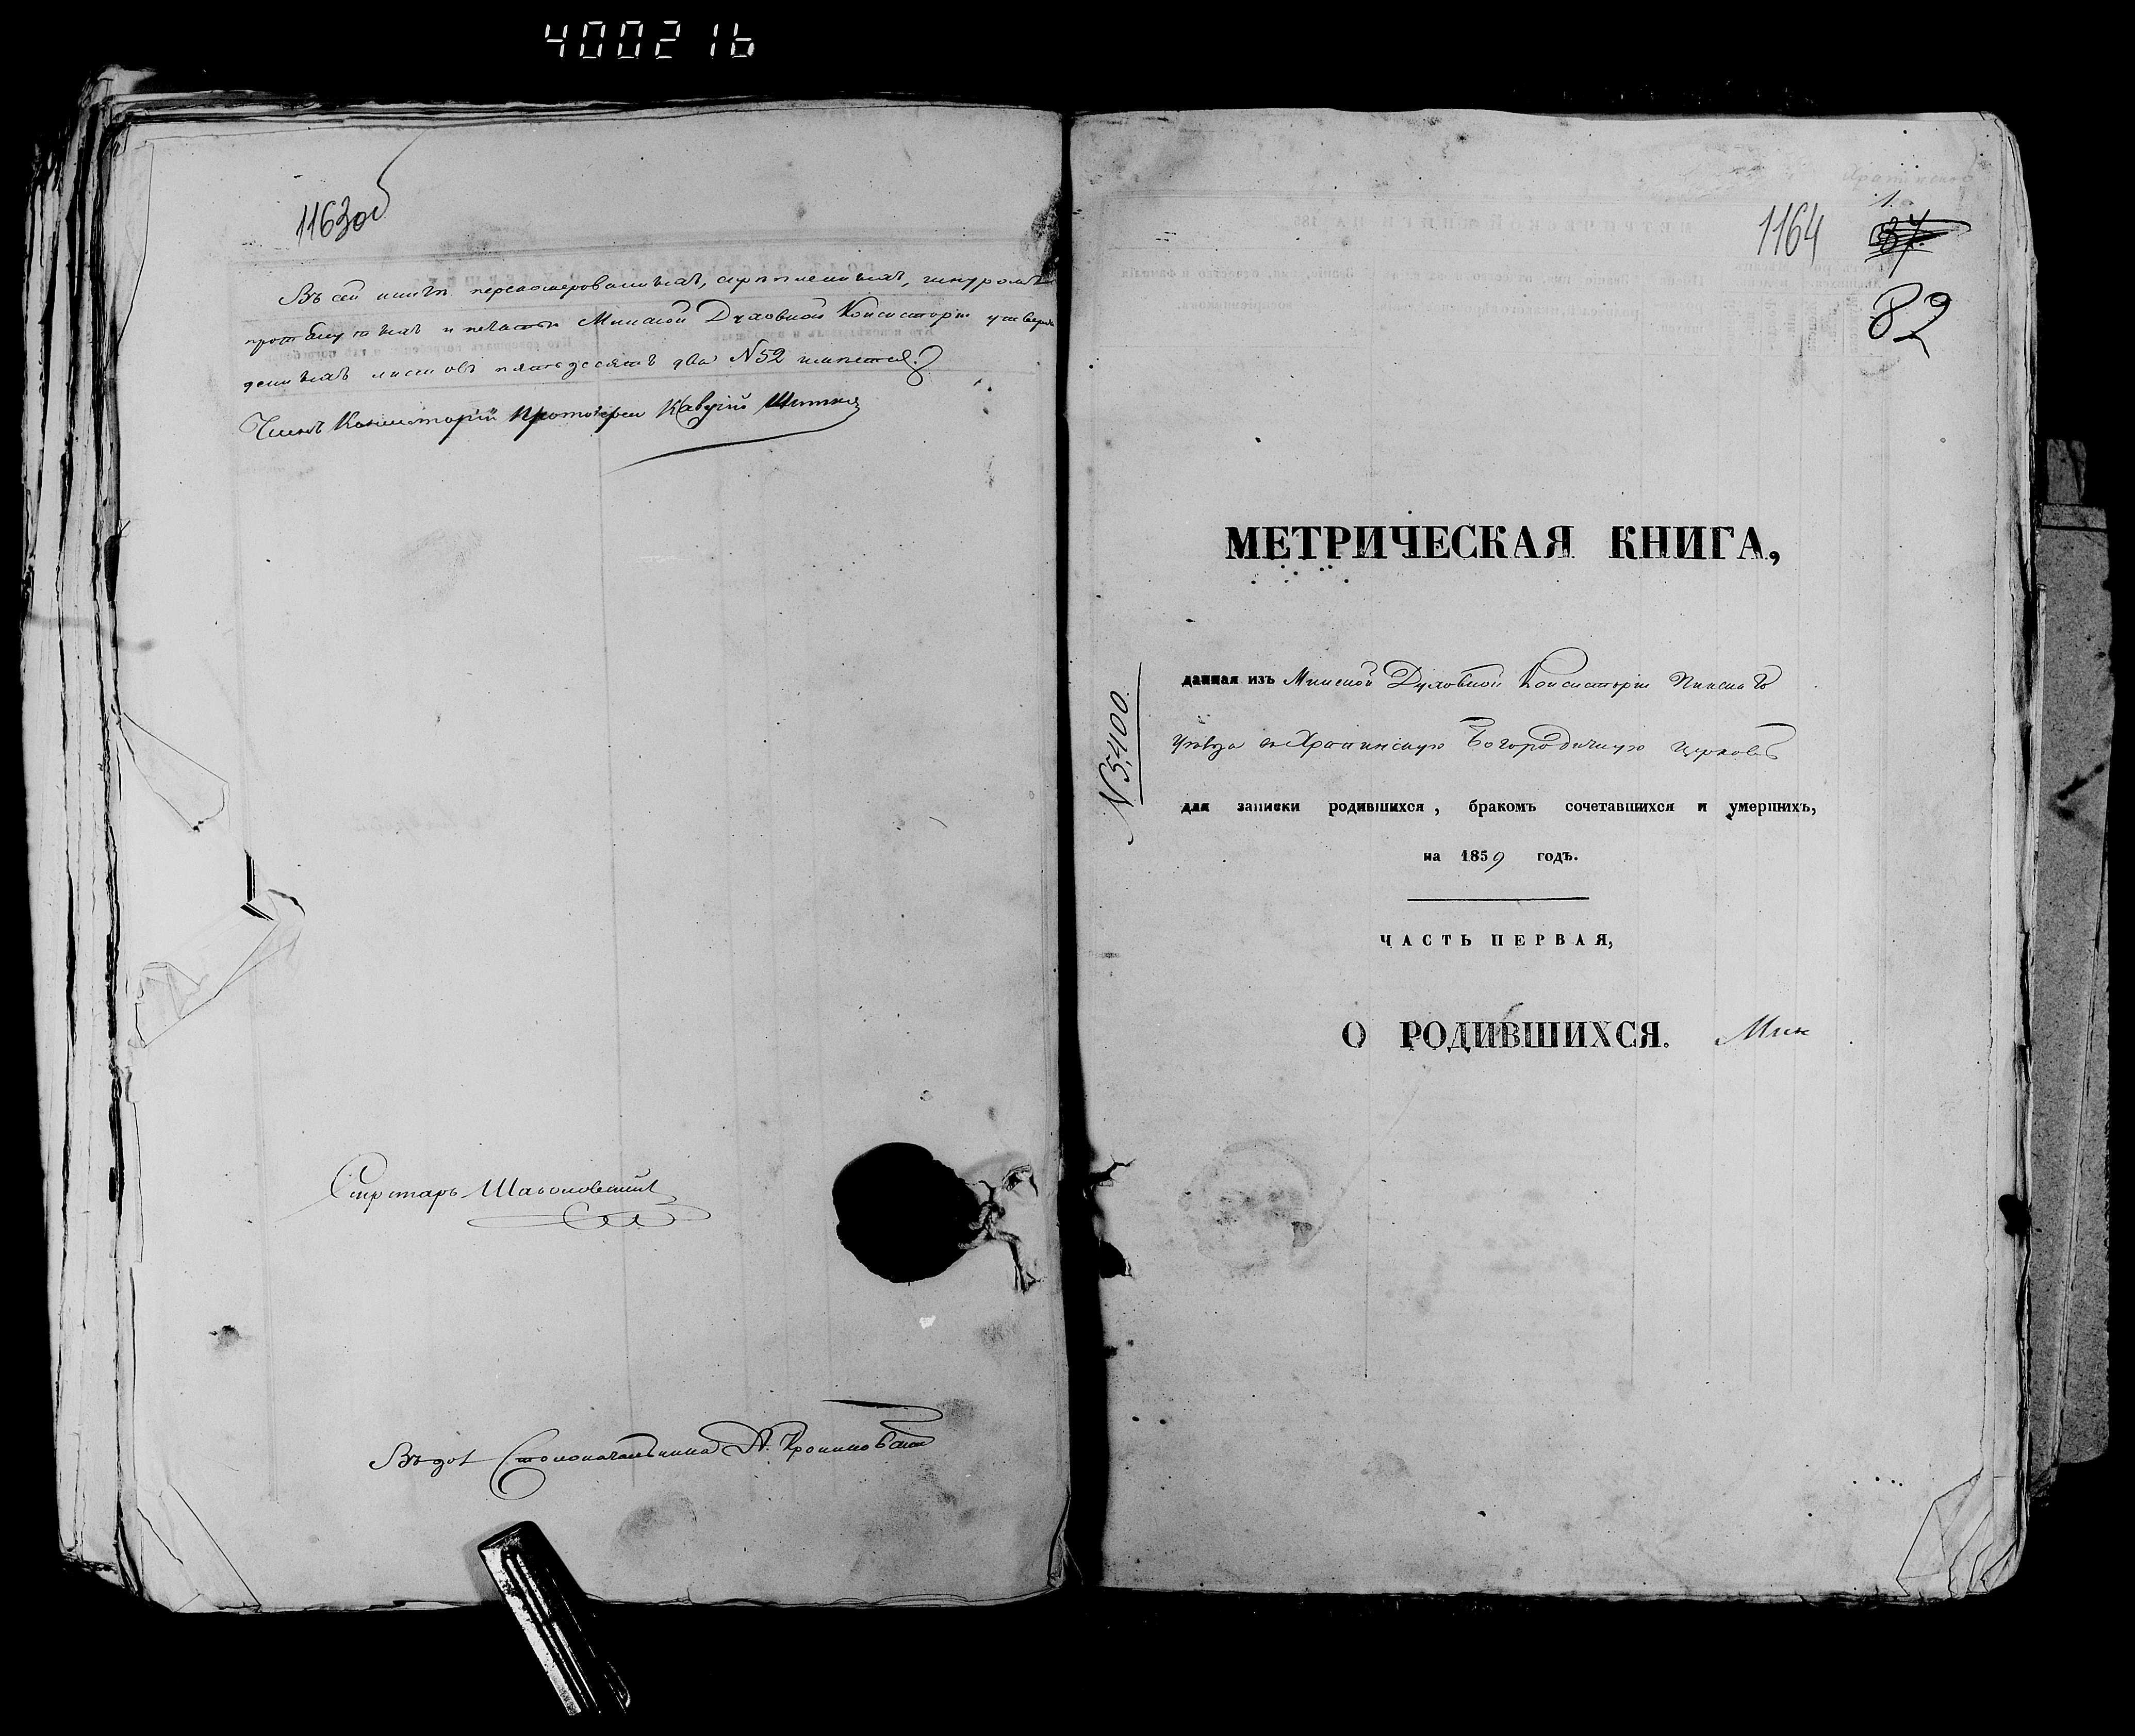 4000216
1163об
Въ сей книгѣ перенумерованныхъ, скрѣпленныхъ, шнуромъ
протянутыхъ и печатью Минской Духовной Консисторіи утверж
денныхъ листовъ пятьдесятъ два N 52 имѣется.
Членъ Консисторіи Протоіерей
Секретарь
Въ дол Столоначальника А.
1.
1164
82
МЕТРИЧЕСКАЯ КНИГА,
данная изъ Минской Духовной Консисторіи Пинскаго
Уѣзда въ Храпинскую Богородичную церковь
N 5,400.
для записки родившихся, бракомъ сочетавшихся и умершихъ,
на 1859 годъ.
ЧАСТЬ ПЕРВАЯ,
О РОДИВШИХСЯ. Мин